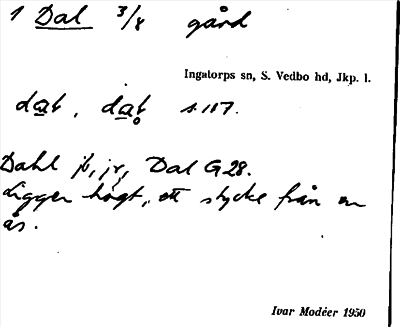 1 Dal 3/8 gård
Ingatorps sn, S. Vedbo hd, Jkp. l.
dat, dat s. 117.
Dahl jb, jr, Dal G 28.
Ligger högt, ett stycke från en
ås.
Ivar Modéer 1950